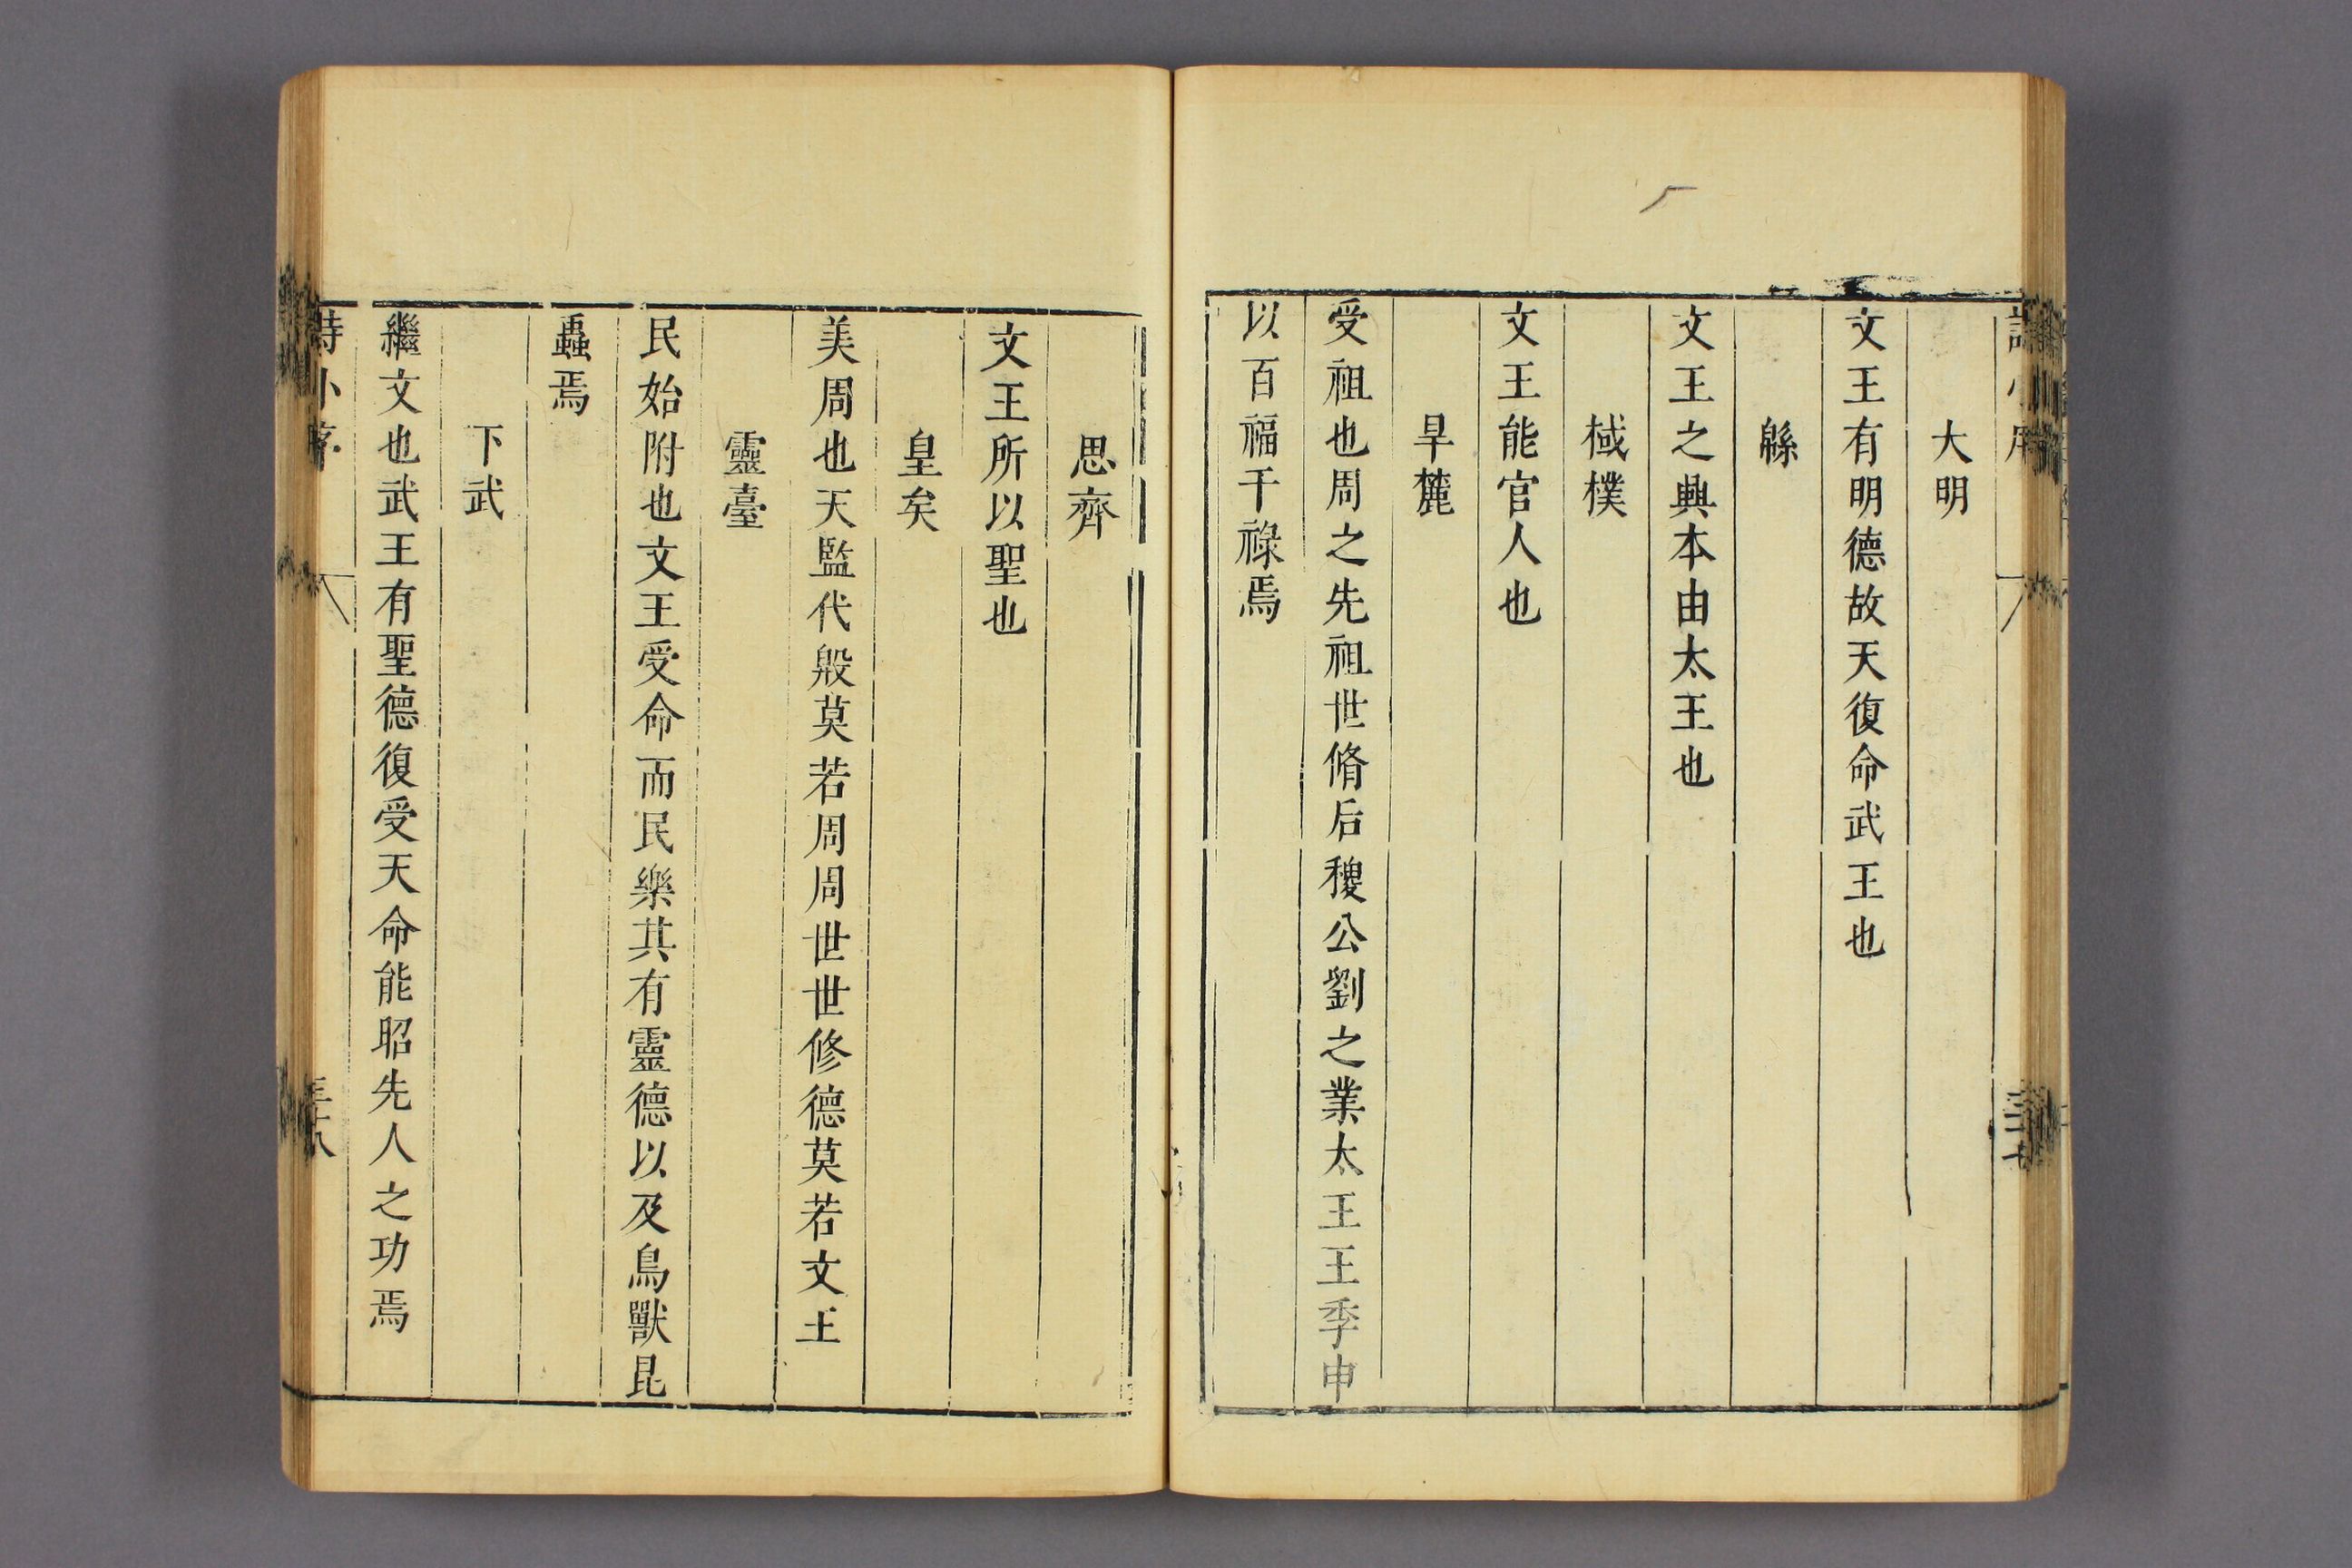 大明
文王有明德故天復命武王也
緜
文王之興本由太王也
棫樸
文王能官人也
旱麓
受祖也周之先祖世脩后稷公劉之業太王王季申
以百福干祿焉
思齊
文王所以聖也
皇矣
美周也天監代殷莫若周周世世修德莫若文王
靈臺
民始附也文王受命而民樂其有靈德以及鳥獸昆
蟲焉
下武
繼文也武王有聖德復受天命能昭先人之功焉
詩小序
三十八